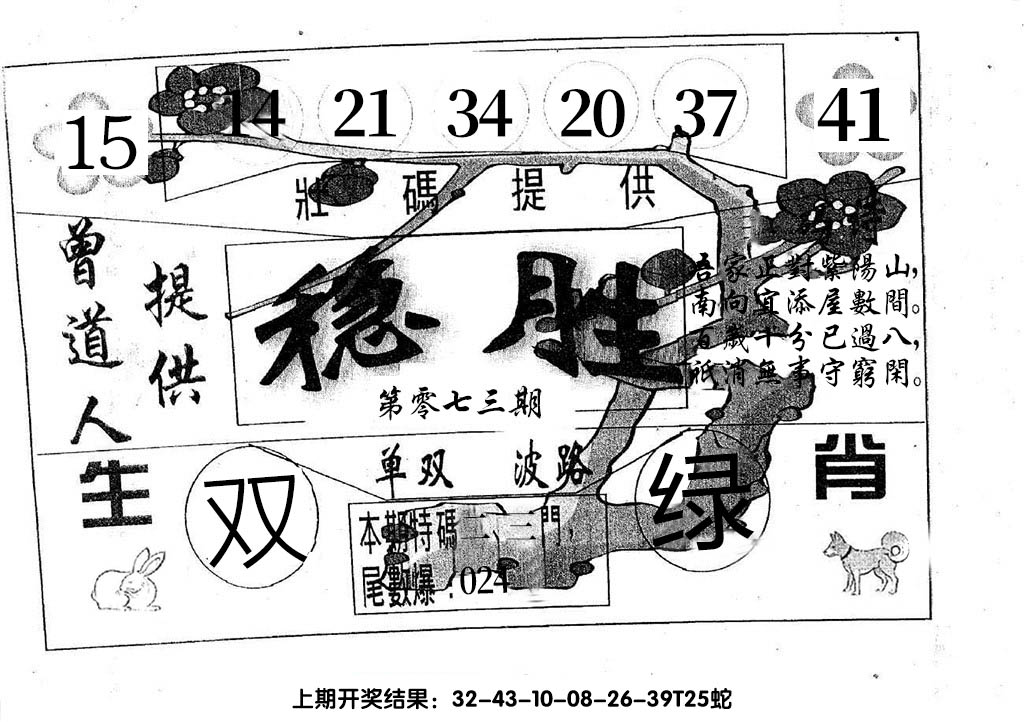 15 14 21 34 20 37 41
壯碼提供
曾道人
提供
稳胜
第零七三期
吾家正對紫陽山，
南向宜添屋數間。
百歲十分已過八，
祇消無事守窮閑。
生肖
单双
双
波路
绿
本期特碼二、三門，
尾數爆：024
上期开奖结果：32-43-10-08-26-39T25蛇